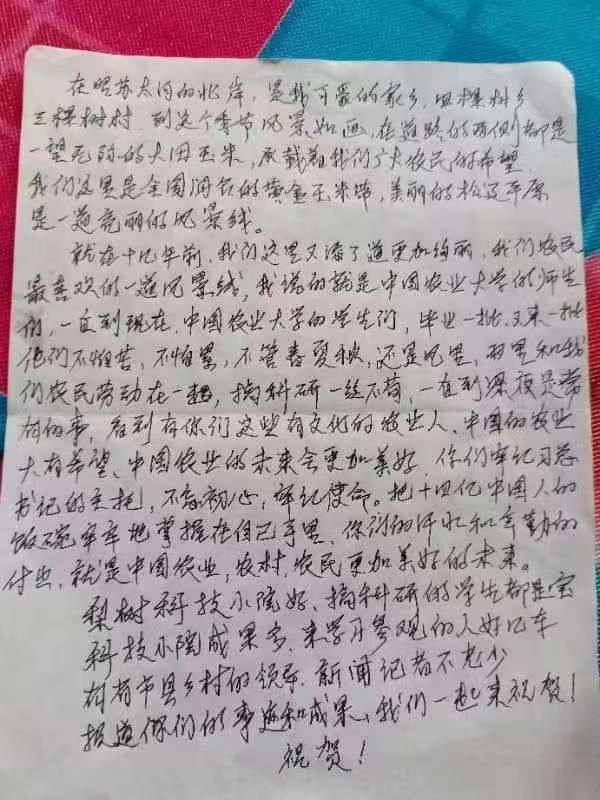 在昭苏太河的北岸，是我可爱的家乡，四棵树乡
三棵树村，到这个季节风景如画，在道路的两侧都是
一望无际的大田玉米，承载着我们广大农民的希望，
我们这里是全国闻名的黄金玉米带，美丽的松辽平原
是一道亮丽的风景线。
就在十几年前，我们这里又添了道更加绚丽，我们农民
最喜欢的一道风景线，我说的就是中国农业大学的师生
们，一直到现在，中国农业大学的学生们，毕业一批，又来一批
他们不怕苦，不怕累，不管春夏秋，还是风里，雨里和我
们农民劳动在一起，搞科研一丝不苟，一直到深夜是常
有的事，看到有你们这些有文化的农业人、中国的农业
大有希望、中国农业的未来会更加美好，你们牢记习总
书记的主托，不忘初心，牢记使命。把十四亿中国人的
饭碗牢牢地掌握在自己手里，你们的汗水和辛勤的
付出、就是中国农业，农村，农民更加美好的未来。
梨树科技小院好、搞科研的学生都是宝
科技小院成果多，来学习参观的人好几车
村有市县乡村的领导，新闻记者不老少
报道你们的事迹和成果、我们一起来祝贺！
祝贺！